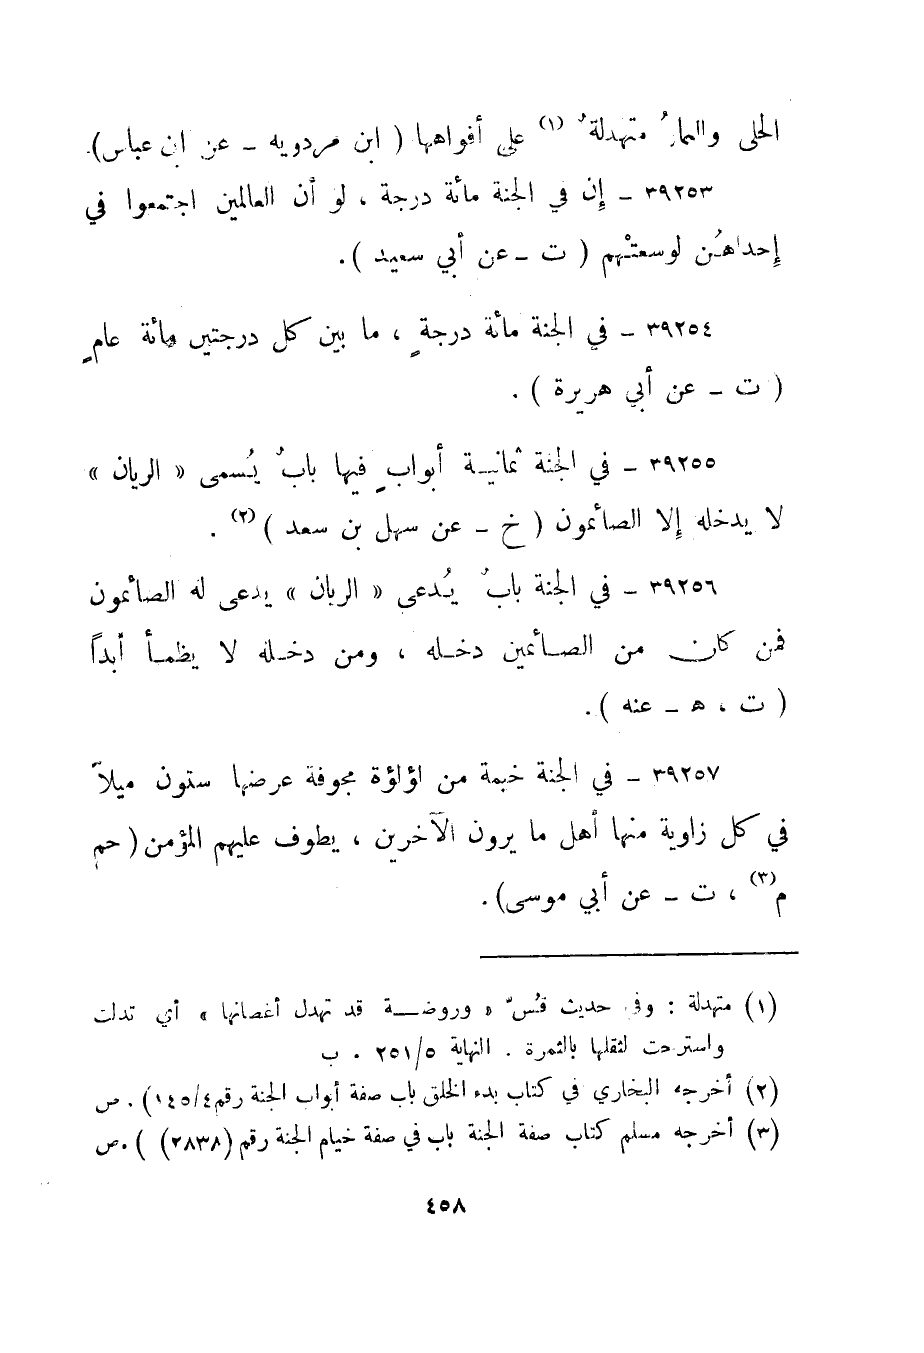 الحلى والثمارُ متهدلةٌ (١) على أفواهها ( ابن مردويه – عن ابن عباس).
٣٩٢٥٣ – إن في الجنة مائة درجة ، لو أن العالمين اجتمعوا في
إحداهُن لوسعتْهم ( ت – عن أبي سعيد ) .
٣٩٢٥٤ – في الجنة مائة درجةٍ ، ما بين كل درجتين مائة عامٍ
( ت – عن أبي هريرة ) .
٣٩٢٥٥ – في الجنة ثمانيـة أبوابٍ فيها بابٌ يُسمى « الريان »
لا يدخله إلا الصائمون ( خ – عن سهل بن سعد ) (٢) .
٣٩٢٥٦ – في الجنة بابٌ يُدعى « الريان » يدعى له الصائمون
فمن كان من الصائمين دخله ، ومن دخله لا يظمأ أبداً
( ت ، هـ – عنه ) .
٣٩٢٥٧ – في الجنة خيمة من لؤلؤة مجوفة عرضها ستون ميلاً
في كل زاوية منها أهل ما يرون الآخرين ، يطوف عليهم المؤمن ( حم
م (٣) ، ت – عن أبي موسى) .
(١) متهدلة : وفي حديث قُسّ « وروضـــة قد تهدل أغصانها » أي تدلت
واسترخت لثقلها بالثمرة . النهاية ٢٥١/٥ . ب
(٢) أخرجه البخاري في كتاب بدء الخلق باب صفة أبواب الجنة رقم ١٤٥/٤) . ص
(٣) أخرجه مسلم كتاب صفة الجنة باب في صفة خيام الجنة رقم (٢٨٣٨) ) .ص
٤٥٨